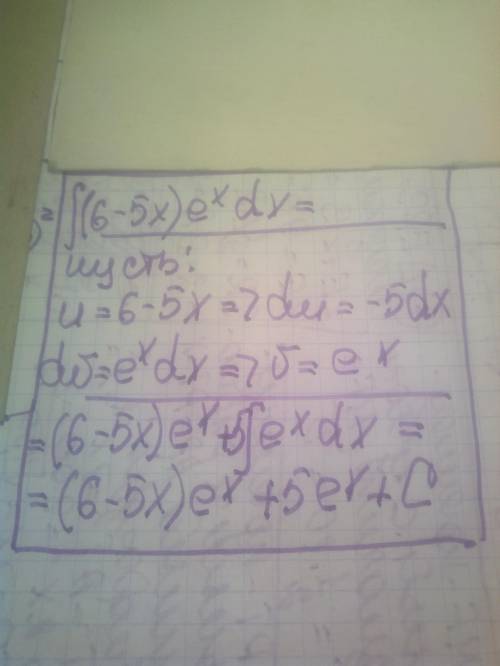 ∫(6-5x)eˣdx=
пусть:
u=6-5x=>du=-5dx
dv=eˣdx=>v=eˣ
=(6-5x)eˣ+5∫eˣdx=
=(6-5x)eˣ+5eˣ+C